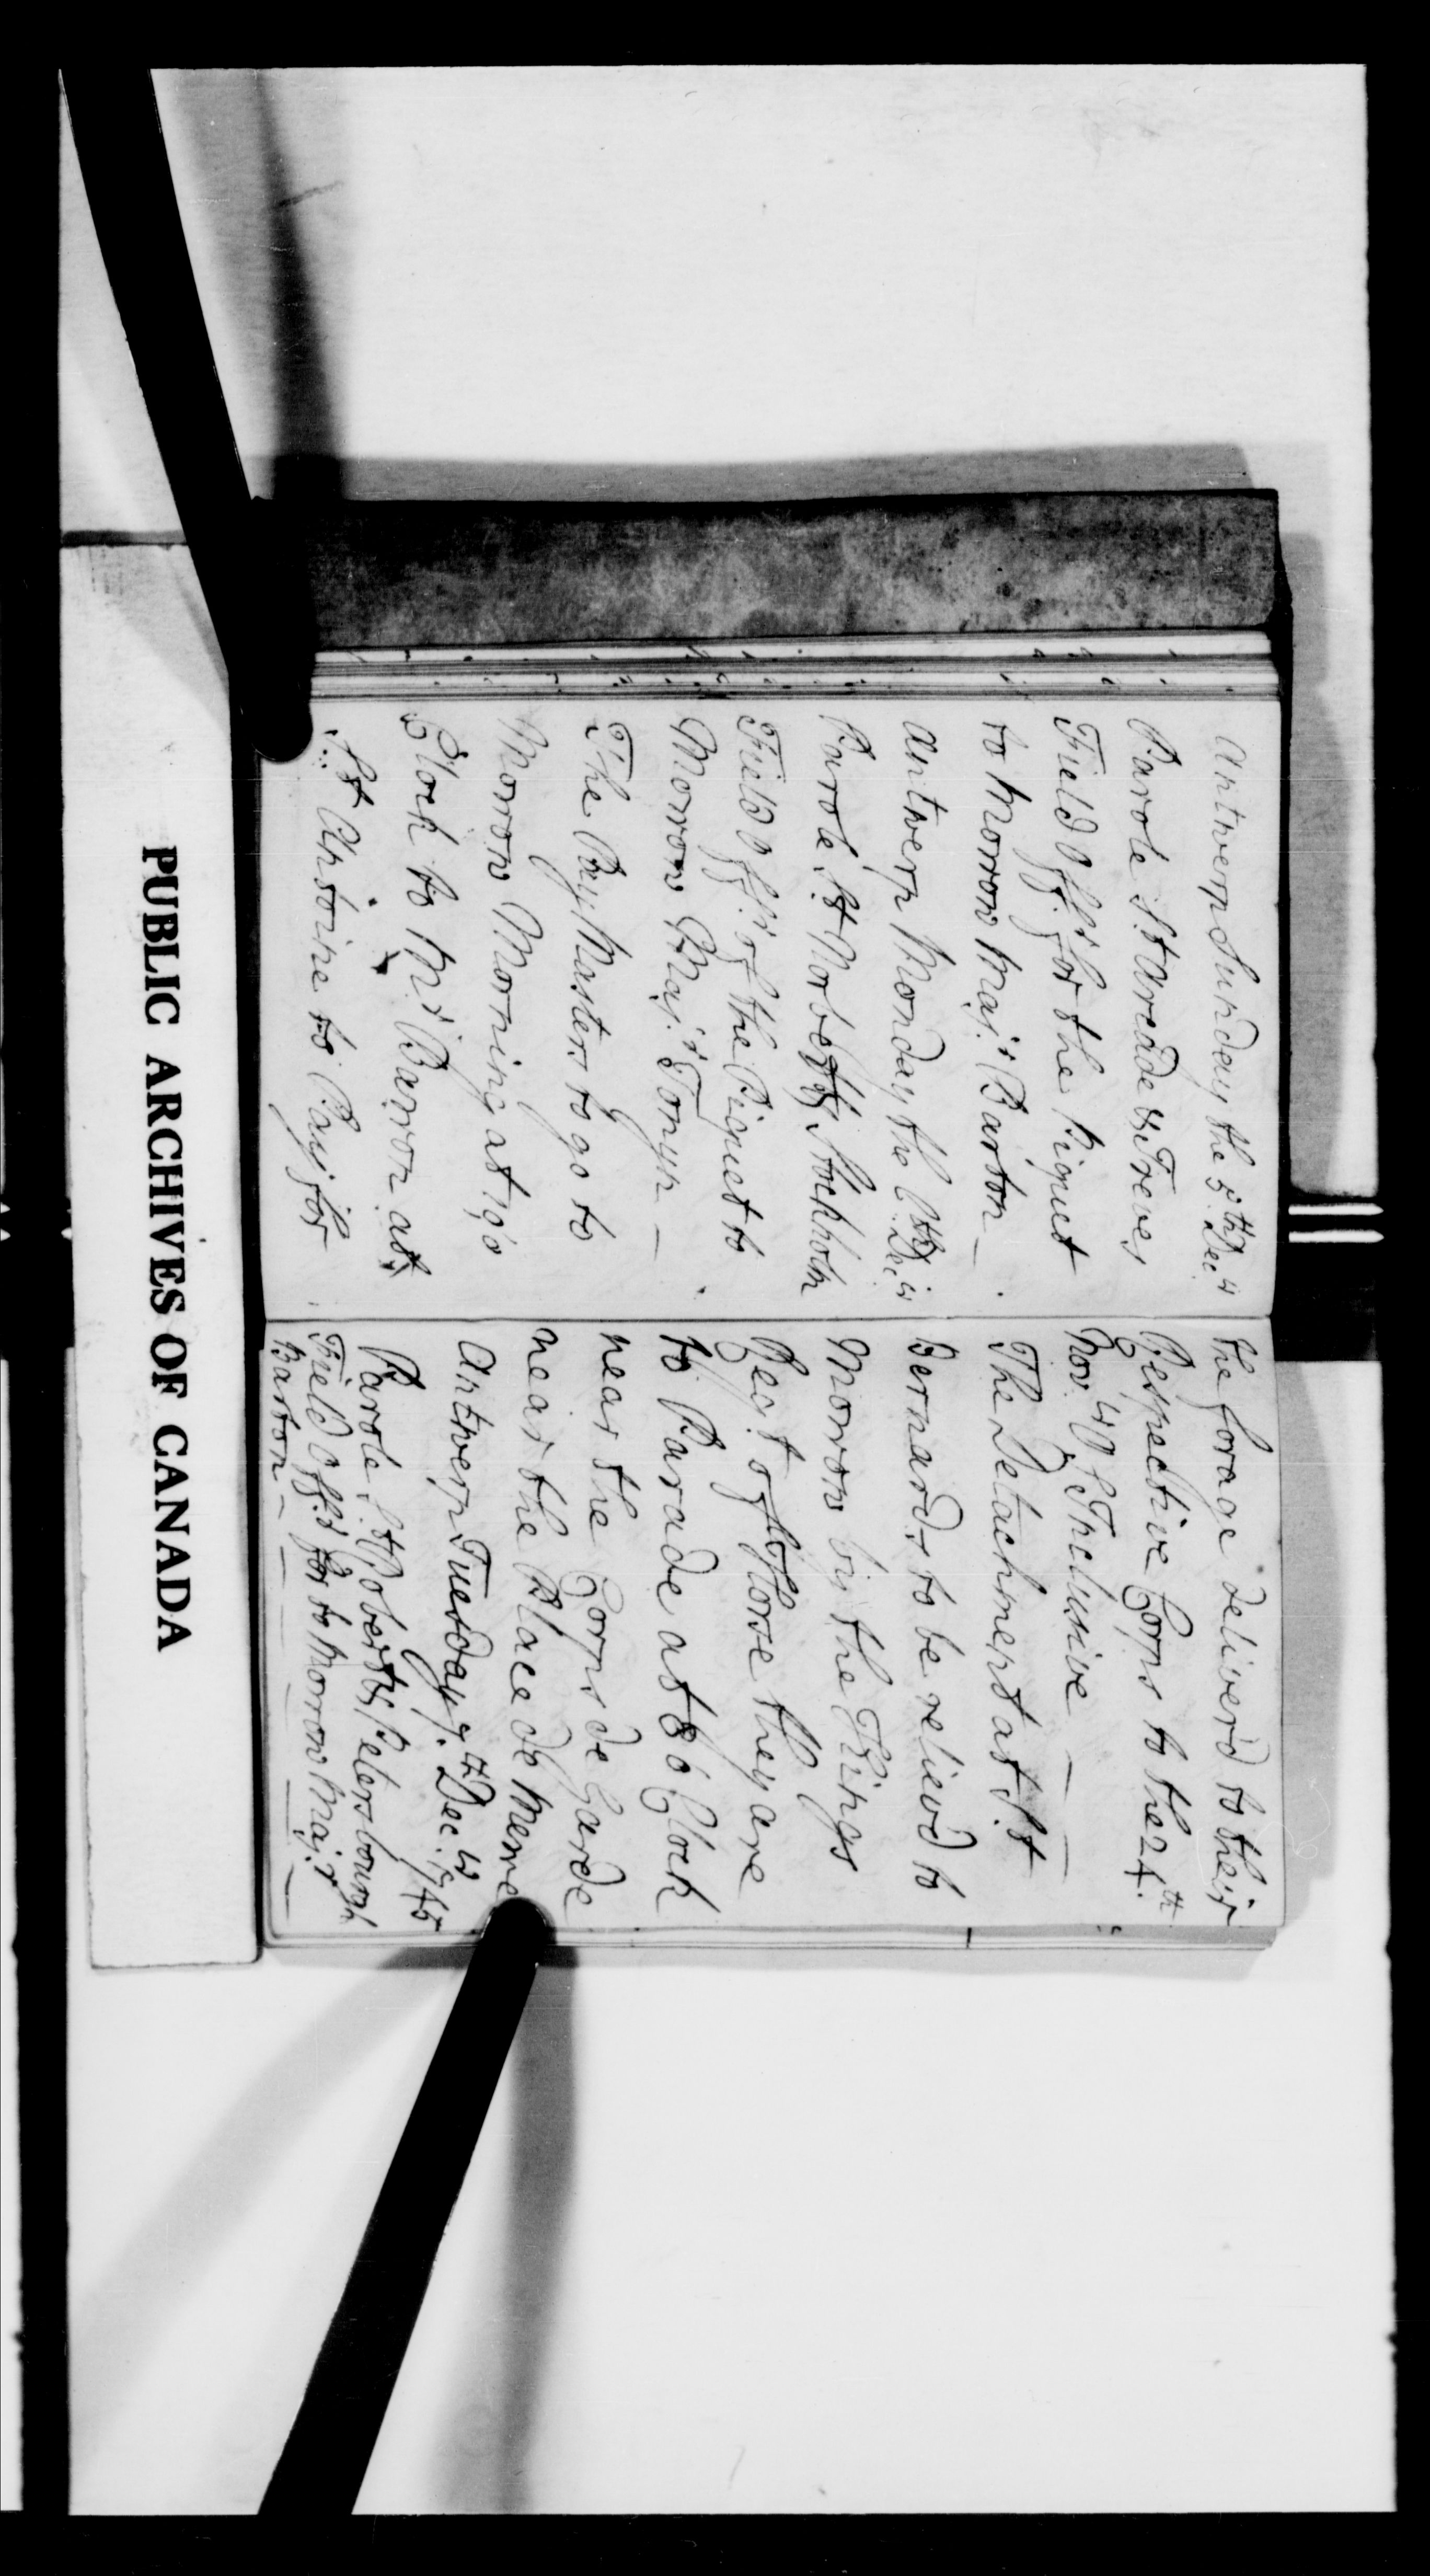 Antwerp Sunday the 5th Decr
Parole St Aredde & Treves
Field Offr for the Piquet
to Morrow Majr Barton
Antwerp Monday the 6th Decr
Parole St Norbert & Stockholm
Field Offr of the Piquet to
Morrow Majr Tonyn
The Pay Masters to go to
Morrow Morning at 10 o
Clock to Mr Barron at
St Antoine to Pay for
the forage deliver'd to their
Respective Corps to the 24th
Novr O: S Inclusive
The Detachment at St
Bernards to be reliev'd to
Morrow by the Kings
Regt of Horse they are
to Parade at 8 o Clock
near the Corps de Garde
near the Place de Meme
Antwerp Tuesday 7th Decr
Parole St Robert & Petersbourgh
Field Offr for to Morrow Majr
Barton
PUBLIC ARCHIVES OF CANADA